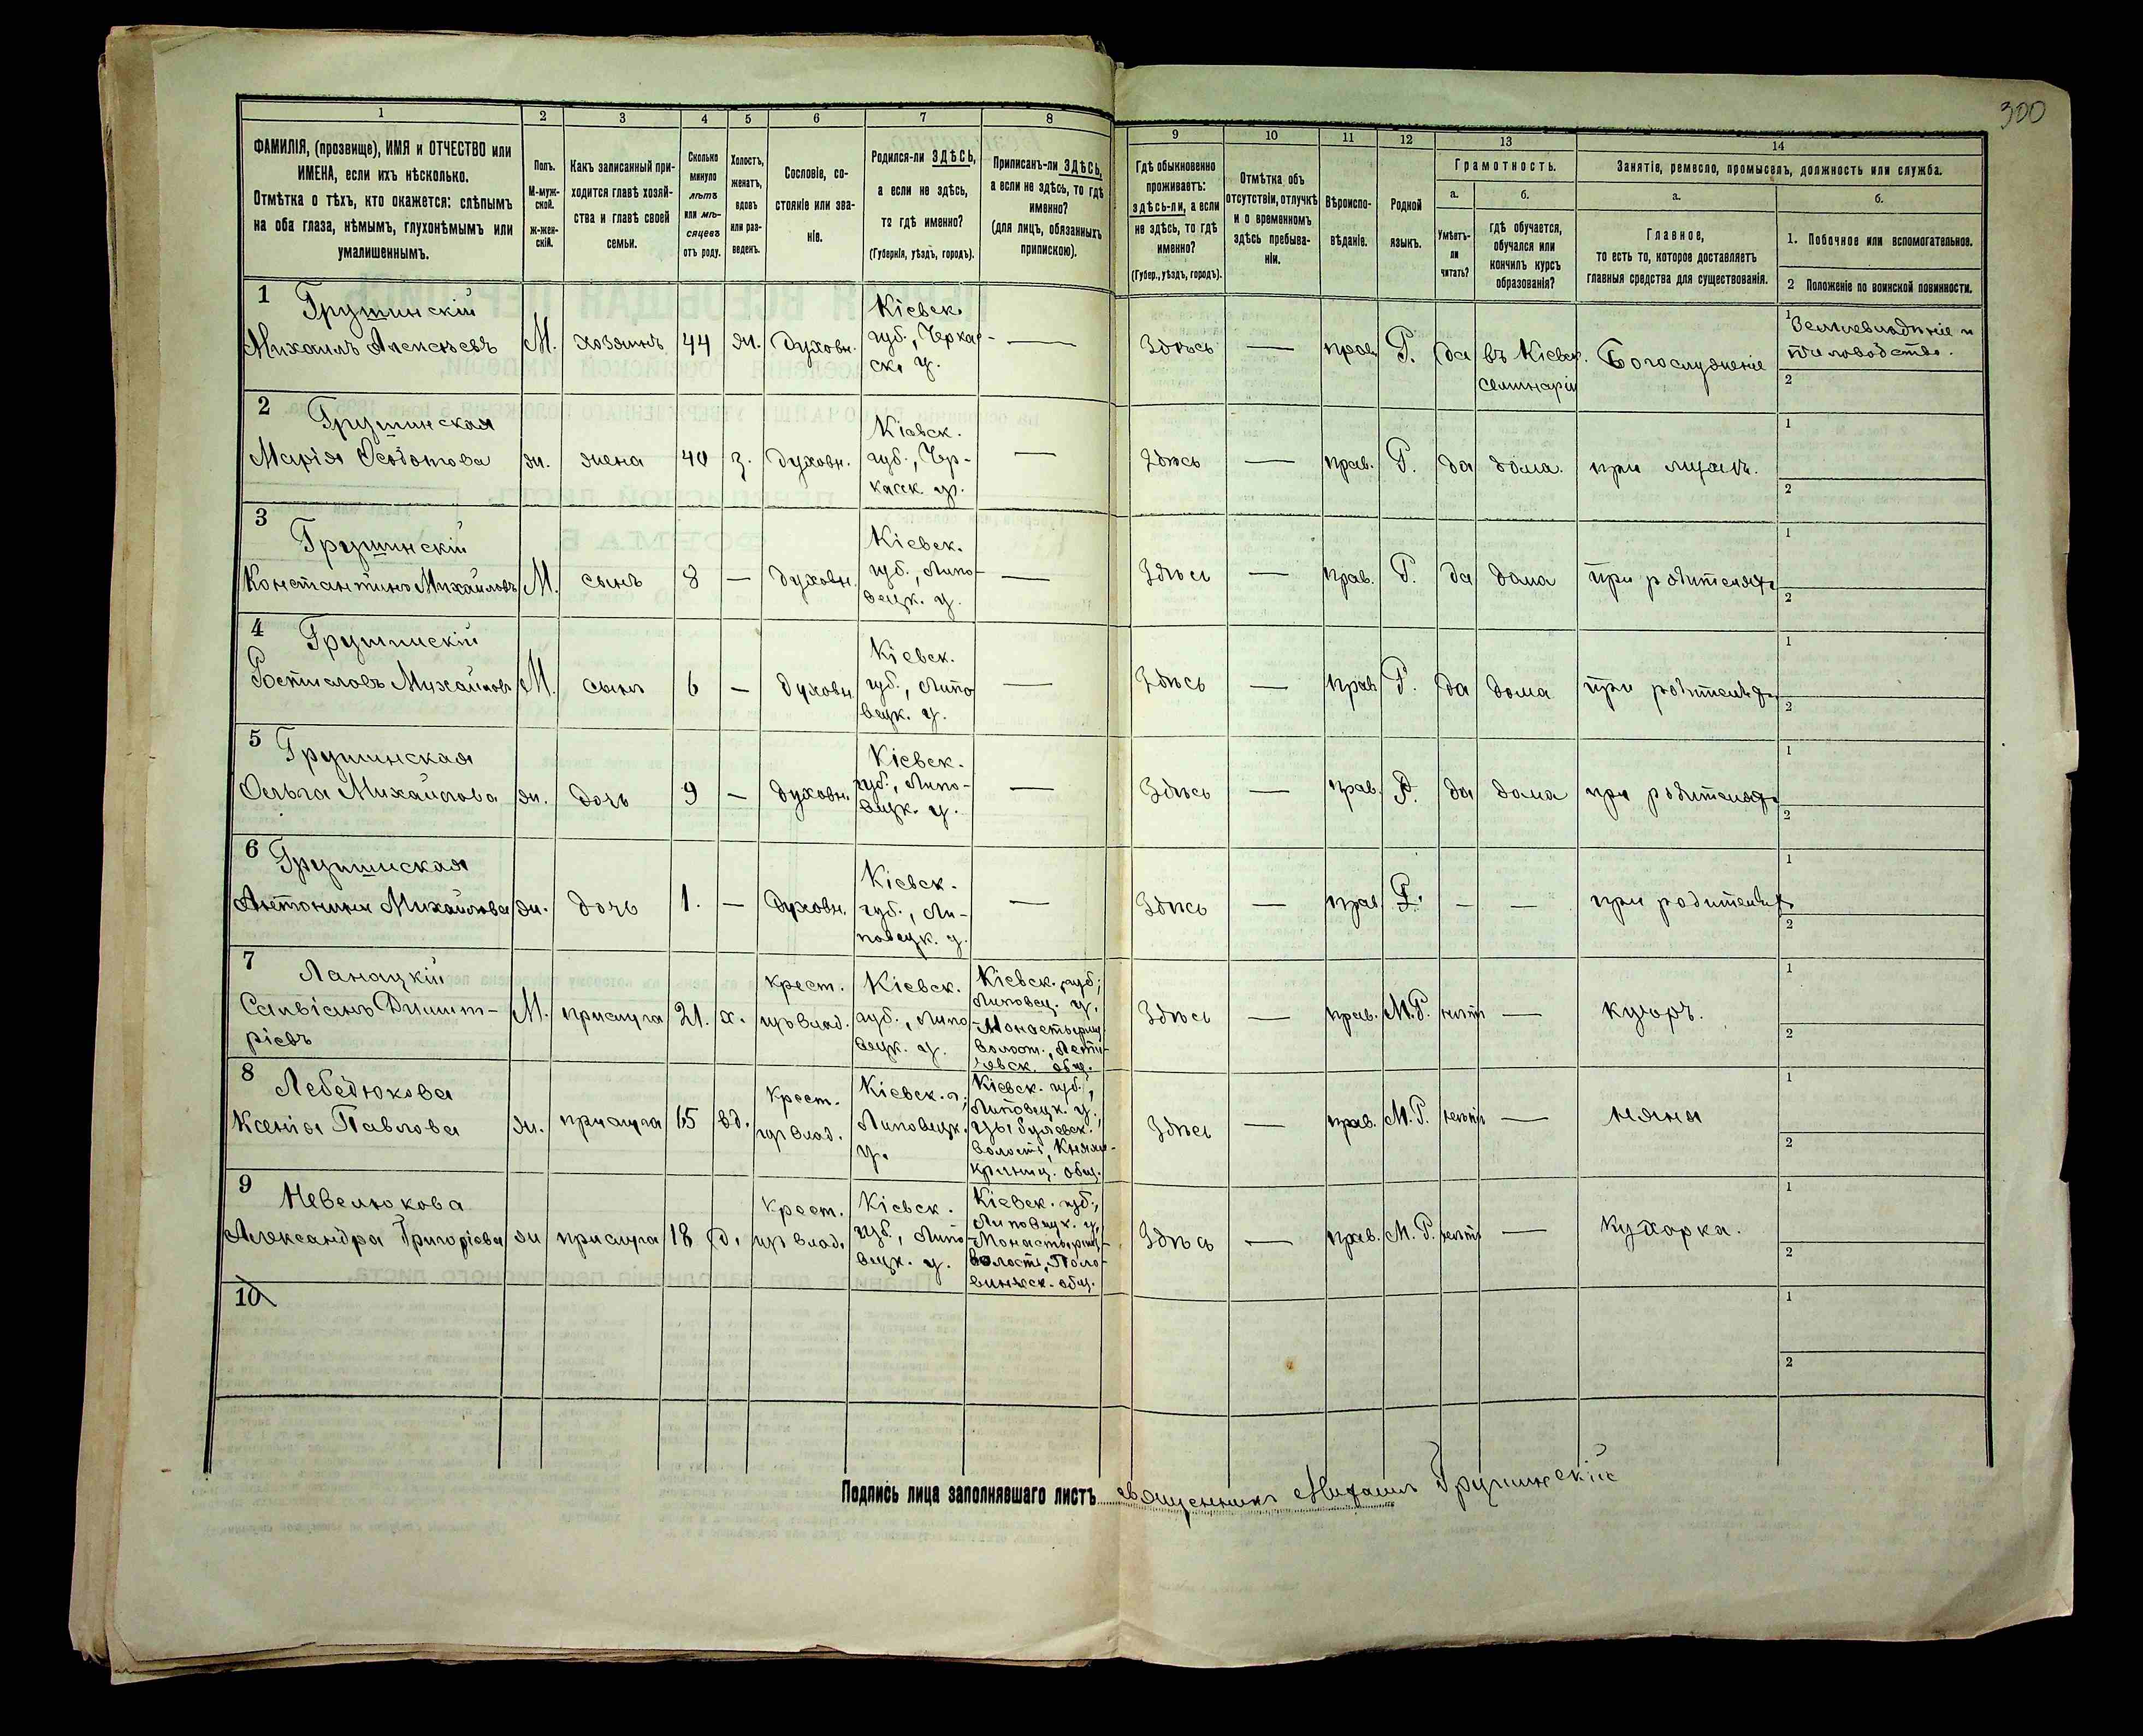 300
1 2 3 4 5 6 7 8 9 10 11 12 13 14
ФАМИЛІЯ, (прозвище), ИМЯ и ОТЧЕСТВО или
ИМЕНА, если ихъ нѣсколько.
Отмѣтка о тѣхъ, кто окажется: слѣпымъ
на оба глаза, нѣмымъ, глухонѣмымъ или
умалишеннымъ.
Полъ.
М-муж-
ской.
ж-жен-
скій.
Какъ записанный при-
ходится главѣ хозяй-
ства и главѣ своей
семьи.
Сколько
минуло
лѣтъ
или мѣ-
сяцевъ
отъ роду.
Холостъ,
женатъ,
вдовъ
или раз-
веденъ.
Сословіе, со-
стояніе или зва-
ніе.
Родился-ли ЗДѢСЬ,
а если не здѣсь,
то гдѣ именно?
(Губернія, уѣздъ, городъ).
Приписанъ-ли ЗДѢСЬ,
а если не здѣсь, то гдѣ
именно?
(для лицъ, обязанныхъ
припискою).
Гдѣ обыкновенно
проживаетъ:
здѣсь-ли, а если
не здѣсь, то гдѣ
именно?
(Губер., уѣздъ, городъ).
Отмѣтка объ
отсутствіи, отлучкѣ
и о временномъ
здѣсь пребыва-
ніи.
Вѣроиспо-
вѣданіе.
Родной
языкъ.
Грамотность.
а.
Умѣетъ-
ли
читать?
б.
гдѣ обучается,
обучался или
кончилъ курсъ
образованія?
Занятіе, ремесло, промыселъ, должность или служба.
а.
Главное,
то есть то, которое доставляетъ
главныя средства для существованія.
б.
1. Побочное или вспомогательное.
2 Положеніе по воинской повинности.
1 Грушинскій
Михаилъ Алексѣевъ М. хозяинъ 44 ж. духовн.
Кіевск.
губ., Черкас-
ск. у.
— Здѣсь — прав. Р. да
въ Кіевск.
семинаріи
Богослуженіе
1 Землевладѣніе и
пчеловодство.
2
2 Грушинская
Марія Ѳедотова ж. жена 40 з. духовн.
Кіевск.
губ., Чер-
касск. у.
— Здѣсь — прав. Р. да дома. при мужѣ.
1
2
3 Грушинскій
Константинъ Михайловъ М. сынъ 8 — духовн.
Кіевск.
губ., Липо-
вецк. у.
— Здѣсь — прав. Р. да дома при родителяхъ
1
2
4 Грушинскій
Ростиславъ Михайловъ М. сынъ 6 — духовн.
Кіевск.
губ., Липо
вецк. у.
— Здѣсь — прав. Р. да дома при родителяхъ
1
2
5 Грушинская
Ольга Михайлова ж. дочь 9 — духовн.
Кіевск.
губ., Липо-
вецк. у.
— Здѣсь — прав. Р. да дома при родителяхъ
1
2
6 Грушинская
Антонина Михайлова ж. дочь 1. — духовн.
Кіевск.
губ., Ли-
повецк. у.
— Здѣсь — прав. Р. — — при родителяхъ
1
2
7 Ланацкій
Сильвіанъ Димит-
ріевъ
М. прислуга 21. х.
крест.
Кіевск.
губ., Липо
вецк. у.
Кіевск. губ;
Липовец. у.
Монастырищ
волост.,
общ.
Здѣсь — прав. М. Р. нѣтъ — кучеръ.
1
2
8 Лебедюкова
Ксенія Павлова ж. прислуга 65 вд.
крест.
Кіевск. г.,
Липовецк.
у.
Кіевск. губ.,
Липовецк. у.,
Цыбулевск.
волости, Княже-
криниц. общ.
Здѣсь — прав. М. Р. нѣтъ — няня
1
2
9 Невелюкова
Александра Григоріева ж прислуга 18 д.
крест.
Кіевск.
губ., Липо
вецк. у.
Кіевск. губ.,
Липовецк. у.,
Монастырищ-
волости, Поло-
винкск. общ.
Здѣсь — прав. М. Р. нѣтъ — кухарка.
1
2
10
1
2
Подпись лица заполнявшаго листъ священникъ Михаилъ Грушинскій